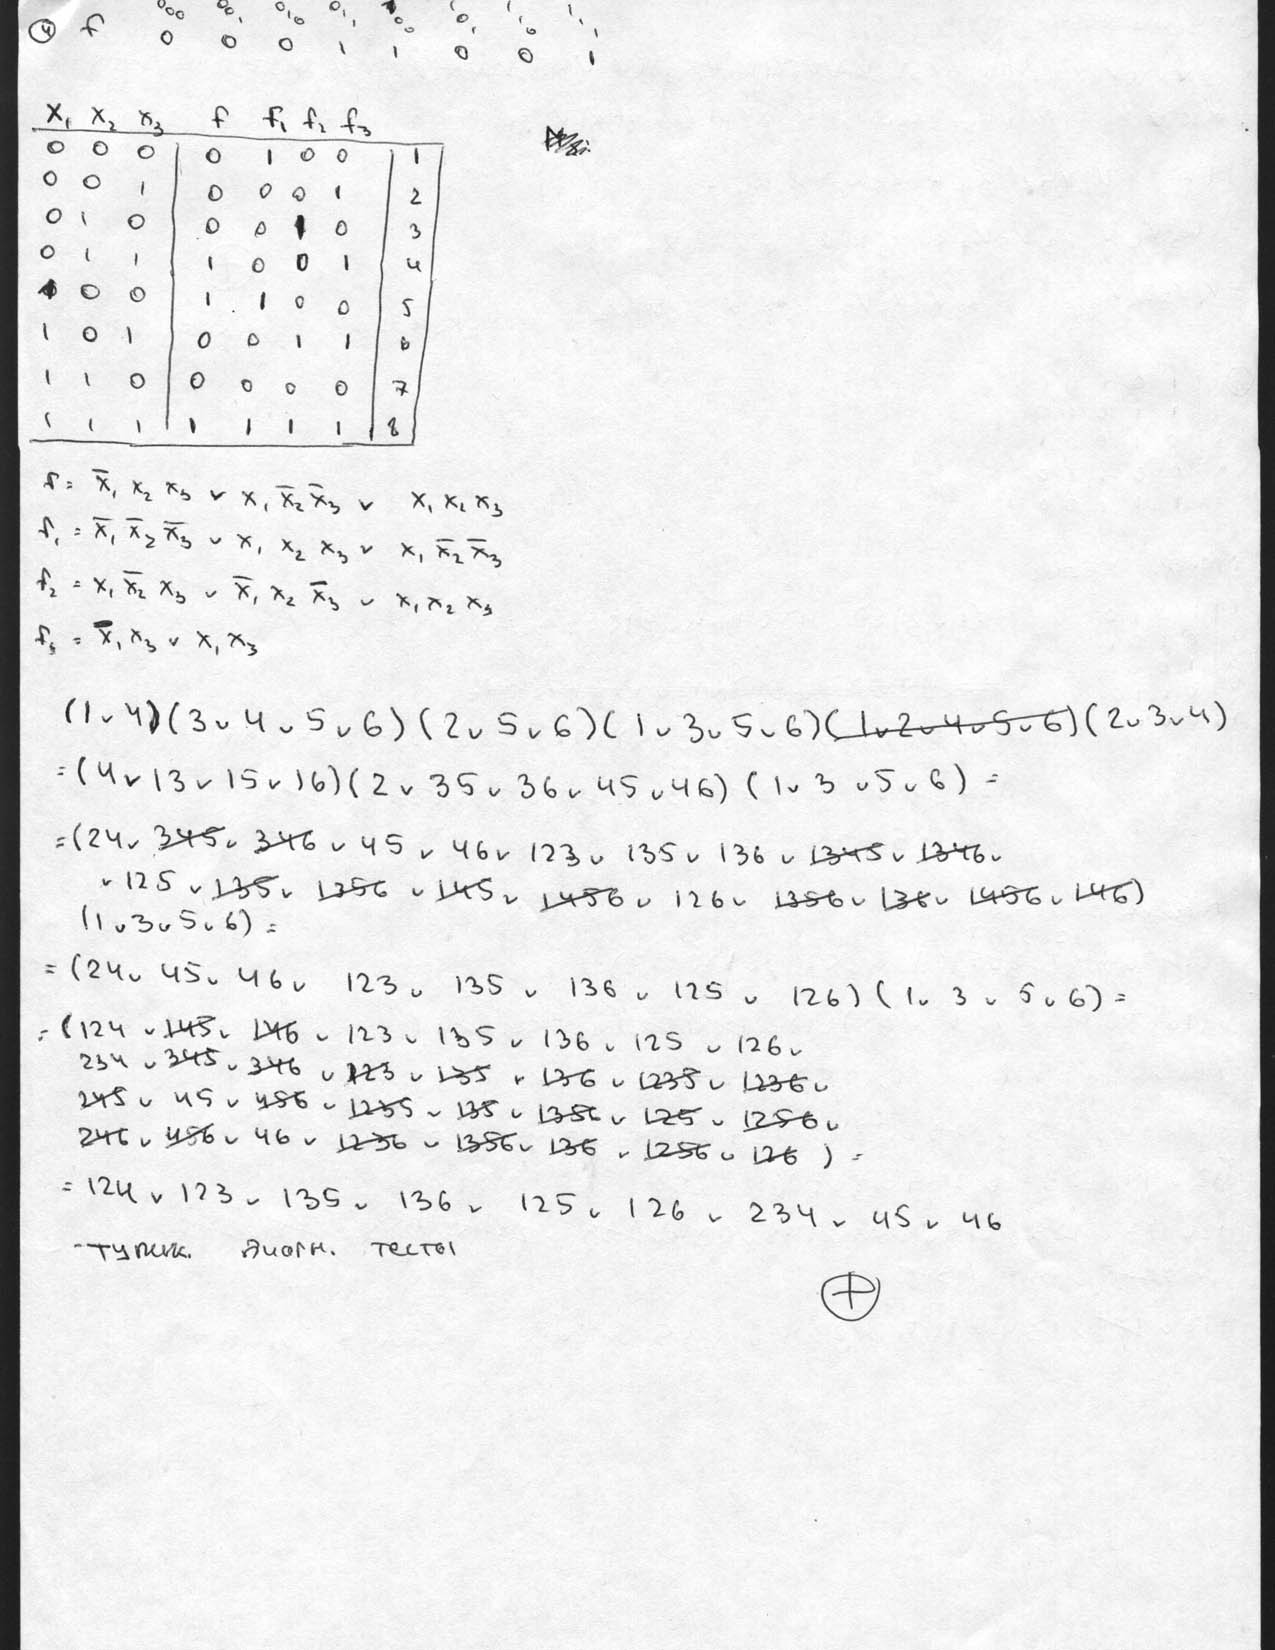 ④ f 000 001 010 011 100 101 110 111
0 0 0 1 1 0 0 1
x₁ x₂ x₃ f f₁ f₂ f₃
0 0 0 0 1 0 0 1
0 0 1 0 0 0 1 2
0 1 0 0 0 1 0 3
0 1 1 1 0 0 1 4
1 0 0 1 1 0 0 5
1 0 1 0 0 1 1 6
1 1 0 0 0 0 0 7
1 1 1 1 1 1 1 8
f = x̄₁ x₂ x₃ ∨ x₁ x̄₂ x̄₃ ∨ x₁ x₂ x₃
f₁ = x̄₁ x̄₂ x̄₃ ∨ x₁ x₂ x₃ ∨ x₁ x̄₂ x̄₃
f₂ = x₁ x̄₂ x₃ ∨ x̄₁ x₂ x̄₃ ∨ x₁ x₂ x₃
f₃ = x̄₁ x₃ ∨ x₁ x₃
(1∨4)(3∨4∨5∨6)(2∨5∨6)(1∨3∨5∨6)(1∨2∨4∨5∨6)(2∨3∨4)
=(4∨13∨15∨16)(2∨35∨36∨45∨46)(1∨3∨5∨6)=
=(24∨345∨346∨45∨46∨123∨135∨136∨1345∨1346∨
∨125∨135∨1356∨145∨1456∨126∨1356∨136∨1456∨146)
(1∨3∨5∨6)=
=(24∨45∨46∨123∨135∨136∨125∨126)(1∨3∨5∨6)=
=(124∨145∨146∨123∨135∨136∨125∨126∨
234∨345∨346∨123∨135∨136∨1235∨1236∨
245∨45∨456∨1235∨135∨1356∨125∨1256∨
246∨456∨46∨1236∨1356∨136∨1256∨126)=
=124∨123∨135∨136∨125∨126∨234∨45∨46
-тупик. диагн. тесты
+